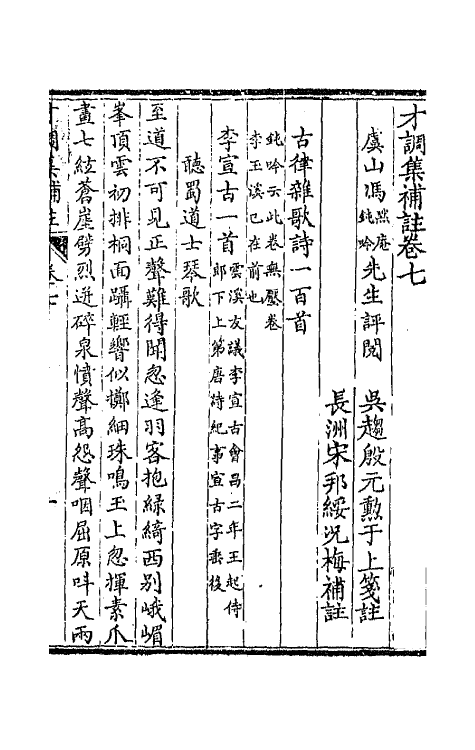 才調集補註卷七
虞山馮默庵鈍吟先生評閱
吳趨殷元勲于上箋註
長洲宋邦綏況梅補註
古律雜歌詩一百首
鈍吟云此卷無壓卷
李玉溪已在前也
李宣古一首雲溪友議李宣古會昌二年王起侍
郎下上第唐詩紀事宣古字垂後
聽蜀道士琴歌
至道不可見正聲難得聞忽逢羽客抱綠綺西别峨嵋
峯頂雲初排桐面躡輕響似擲細珠鳴玉上忽揮素爪
畫七絃蒼崖劈烈迸碎泉憤聲高怨聲咽屈原呌天兩
才調集補註
卷七
一